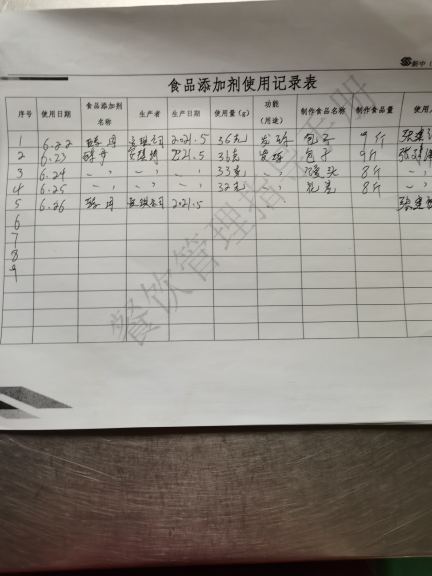 新中
食品添加剂使用记录表
序号 使用日期 食品添加剂名称 生产者 生产日期 使用量(g) 功能(用途) 制作食品名称 制作食品量 使用人
1 6.22 2021.5 36克 发酵 包子 9斤
2 6.23 酵母 2021.5 36克 发酵 包子 9斤
3 6.24 〃 〃 〃 33克 〃 馒头 8斤 〃
4 6.25 〃 〃 〃 32克 〃 花卷 8斤 〃
5 6.26 2021.5
6
7
8
9
餐饮管理指导手册